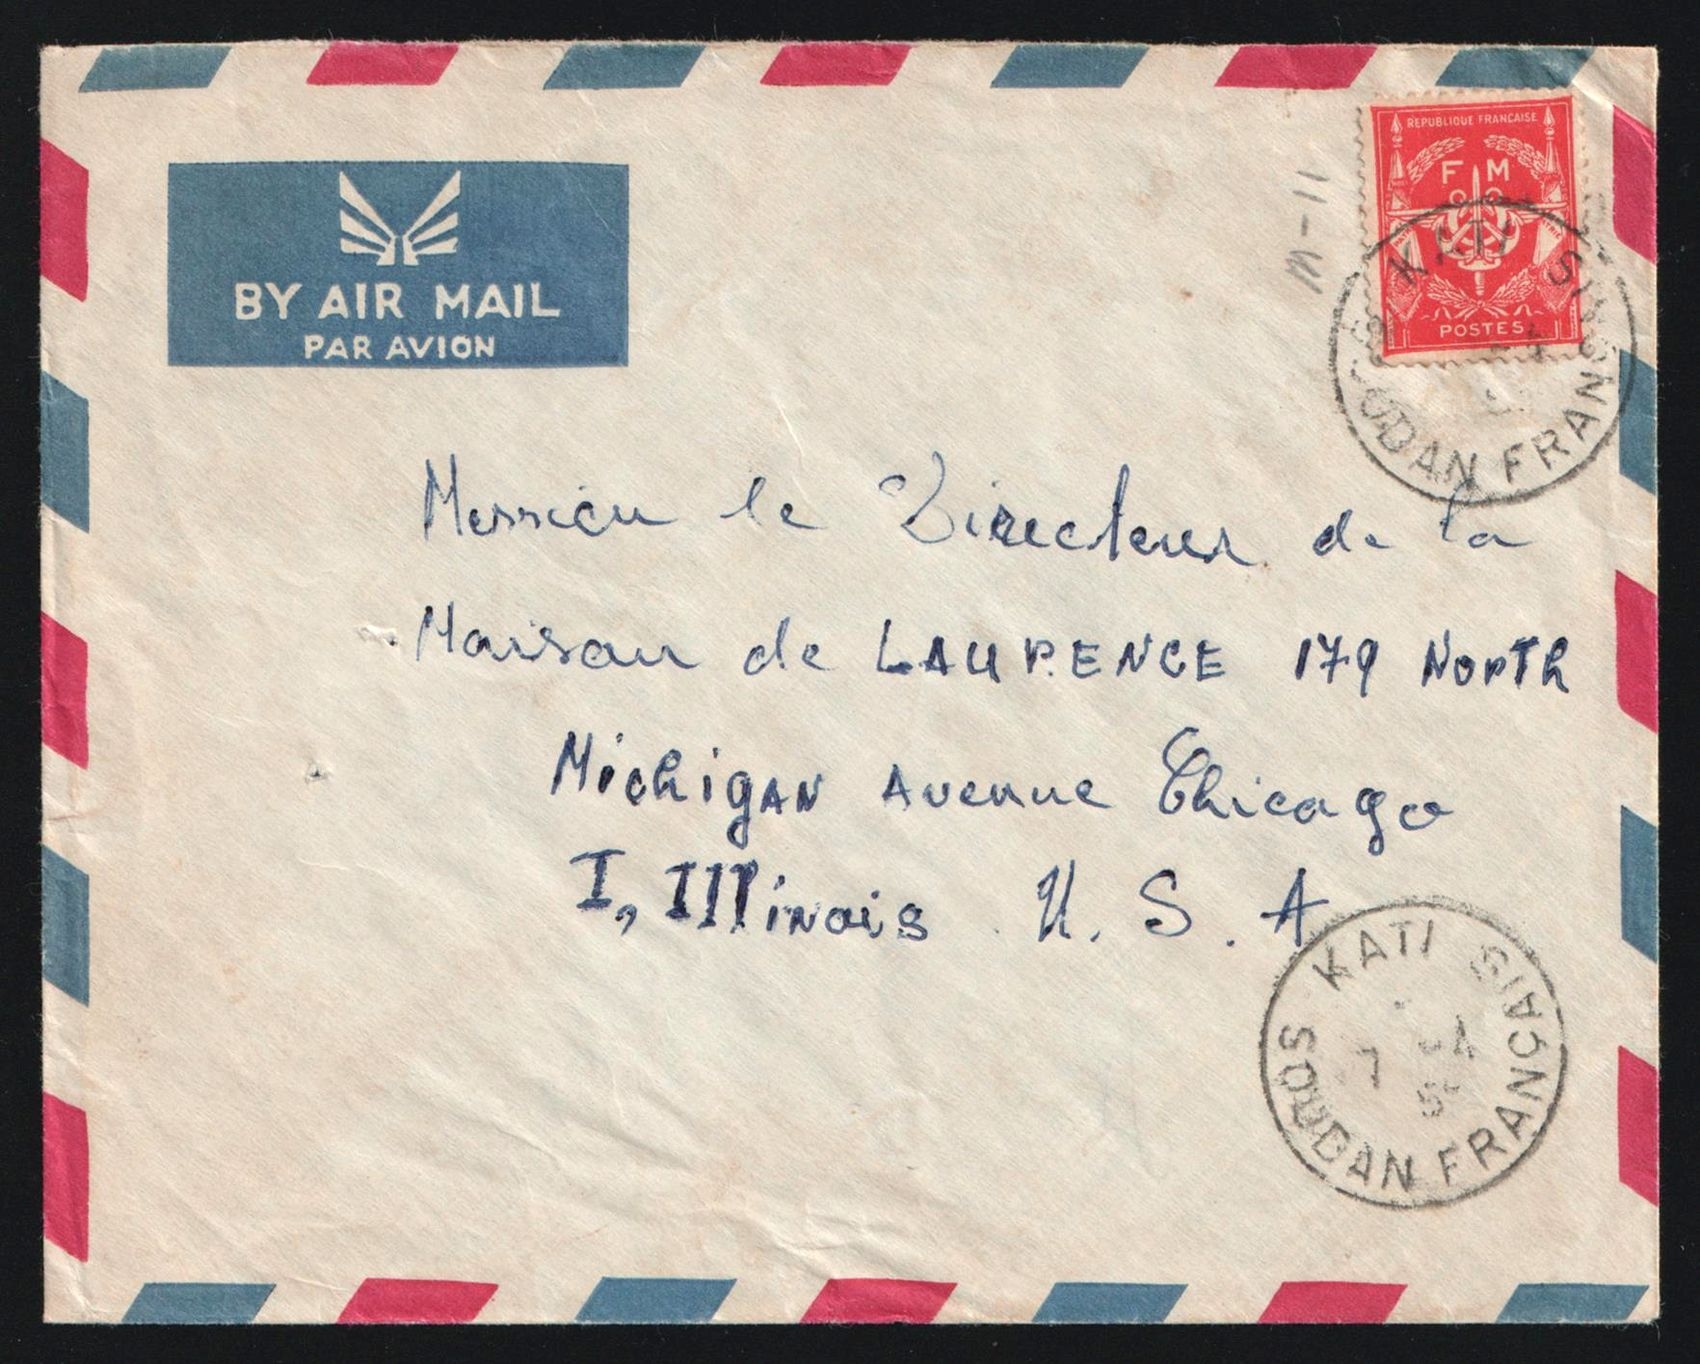 BY AIR MAIL
PAR AVION
REPUBLIQUE FRANCAISE
F M
POSTES
KATI
SOUDAN FRANÇAIS
M-11
Monsieu le Directeur de la
Maison de LAURENCE 179 NORTh
Michigan Avenue Chicago
I, Illinois U. S. A
KATI
7
SOUDAN FRANÇAIS